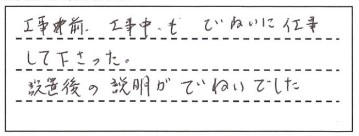 工事前、工事中も ていねいに仕事
して下さった。
設置後の説明がていねいでした